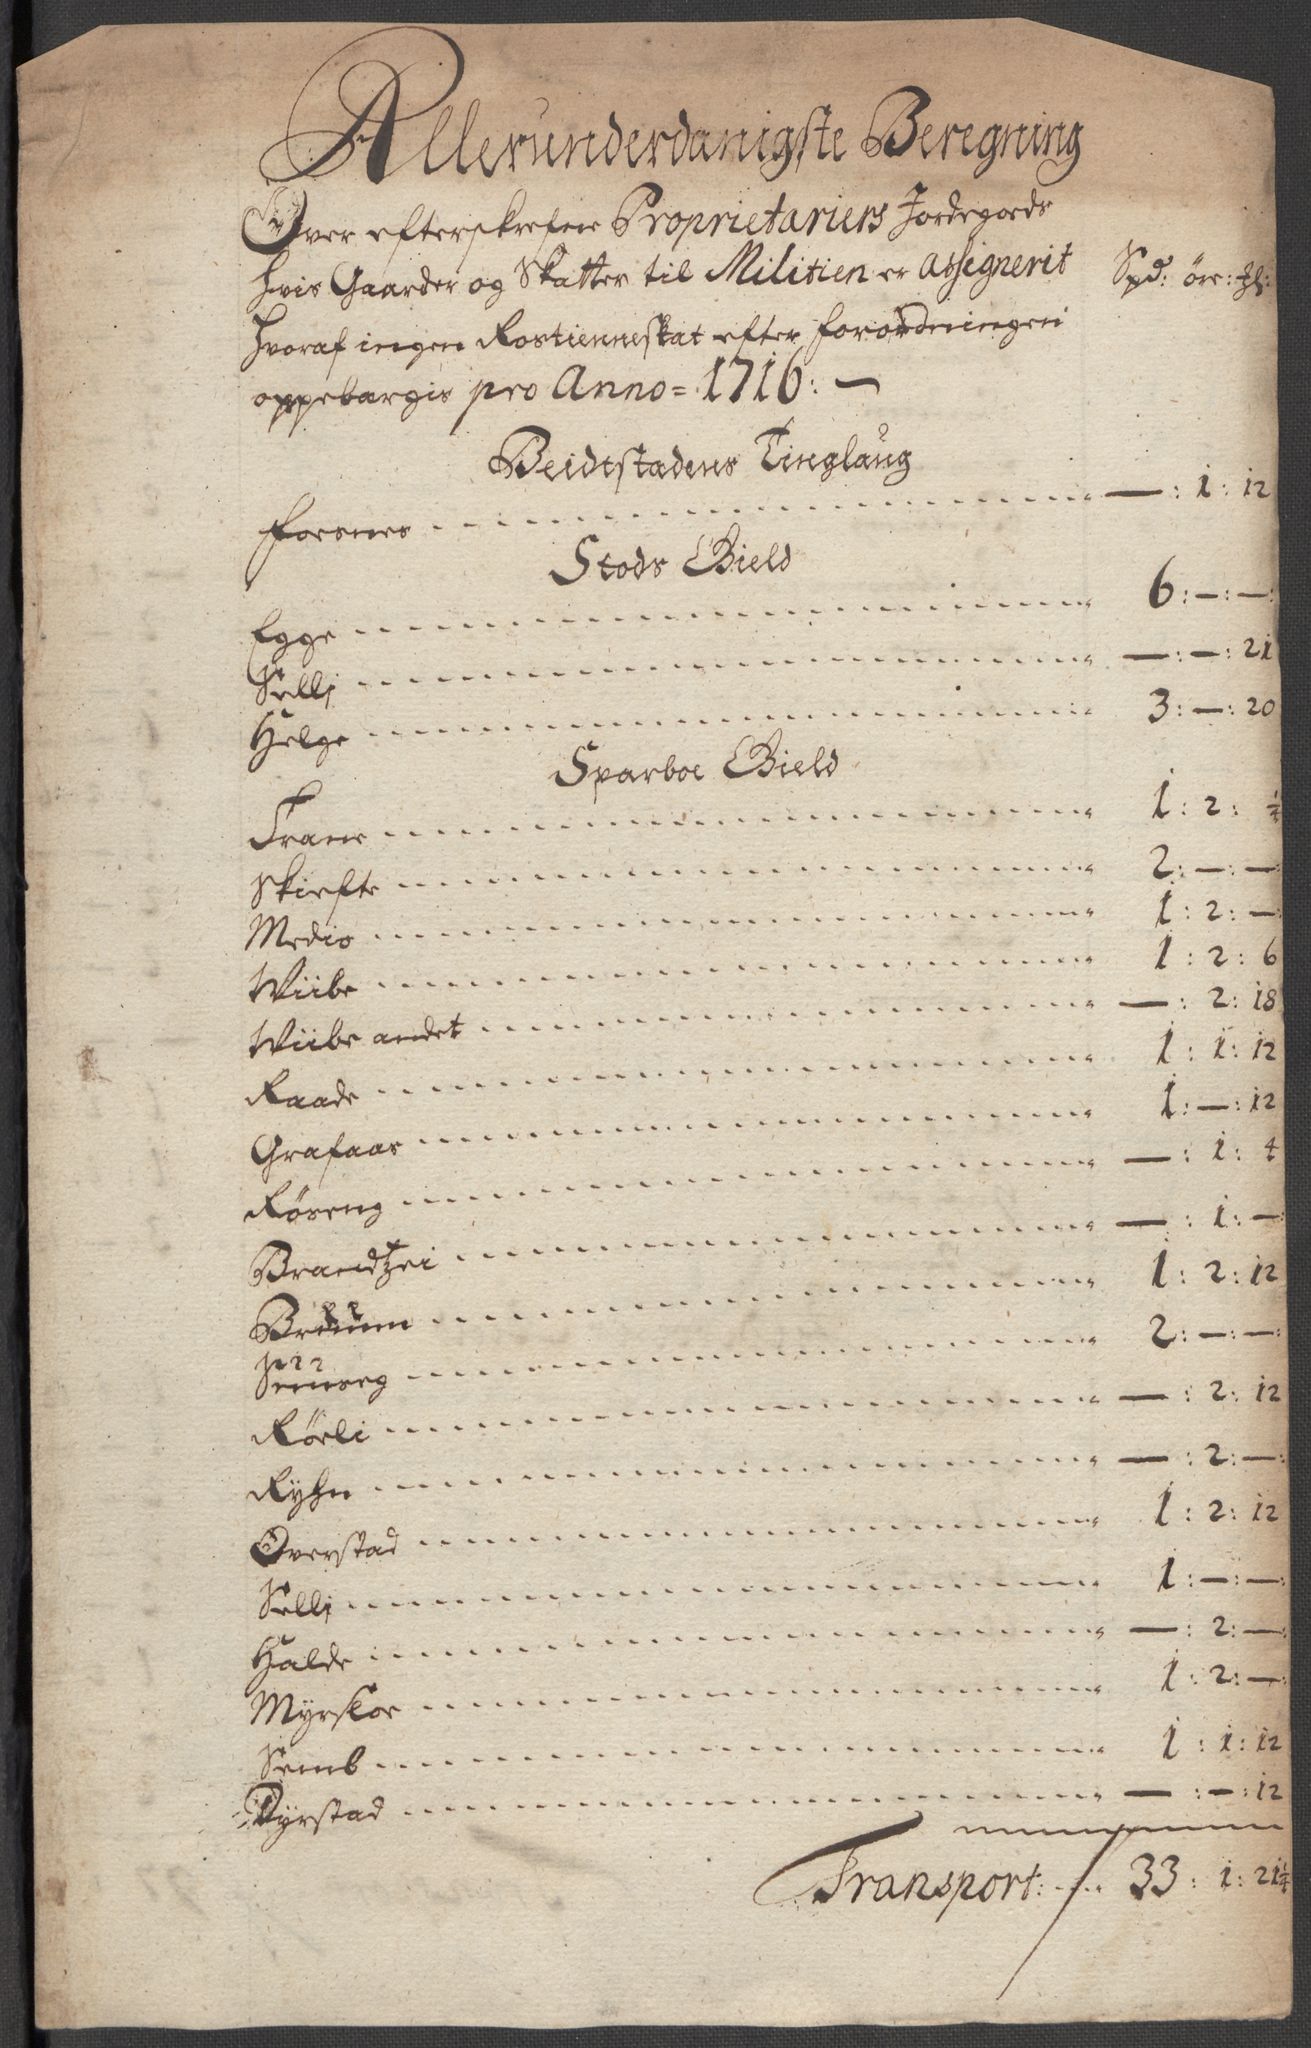 Allerunderdanigste Beregning
Over efterskrefne Proprietariers Jordegoeds
hvis Gaarder og Skatter til Militien er assignerit Spd: öre: Ʒl:
hvoraf ingen Rostienneskat efter forordningen
oppebærgis pro Anno = 1716: —
Beidtstadens Tinglaug
Forsnes — : 1 : 12
Stods Gield
Egge 6 : — : —
Selli — : — : 21
Helge 3 : — : 20
Sparboe Gield
Trane 1 : 2 : ¼
Skiefte 2 : — : —
Medio 1 : 2 : —
Wiibe 1 : 2 : 6
Wiibe andet — : 2 : 18
Raade 1 : 1 : 12
Grafaas 1 : — : 12
Røseng — : 1 : 4
Brandtzei — : 1 : —
Bruum 1 : 2 : 12
2 : — : —
Rørli — : 2 : 12
Ryhn — : 2 : —
Overstad 1 : 2 : 12
Selli 1 : — : —
Halde — : 2 : —
Myrskoe 1 : 2 : —
Semb 1 : 1 : 12
Dyrstad — : — : 12
Transport: 33 : 1 : 21¼